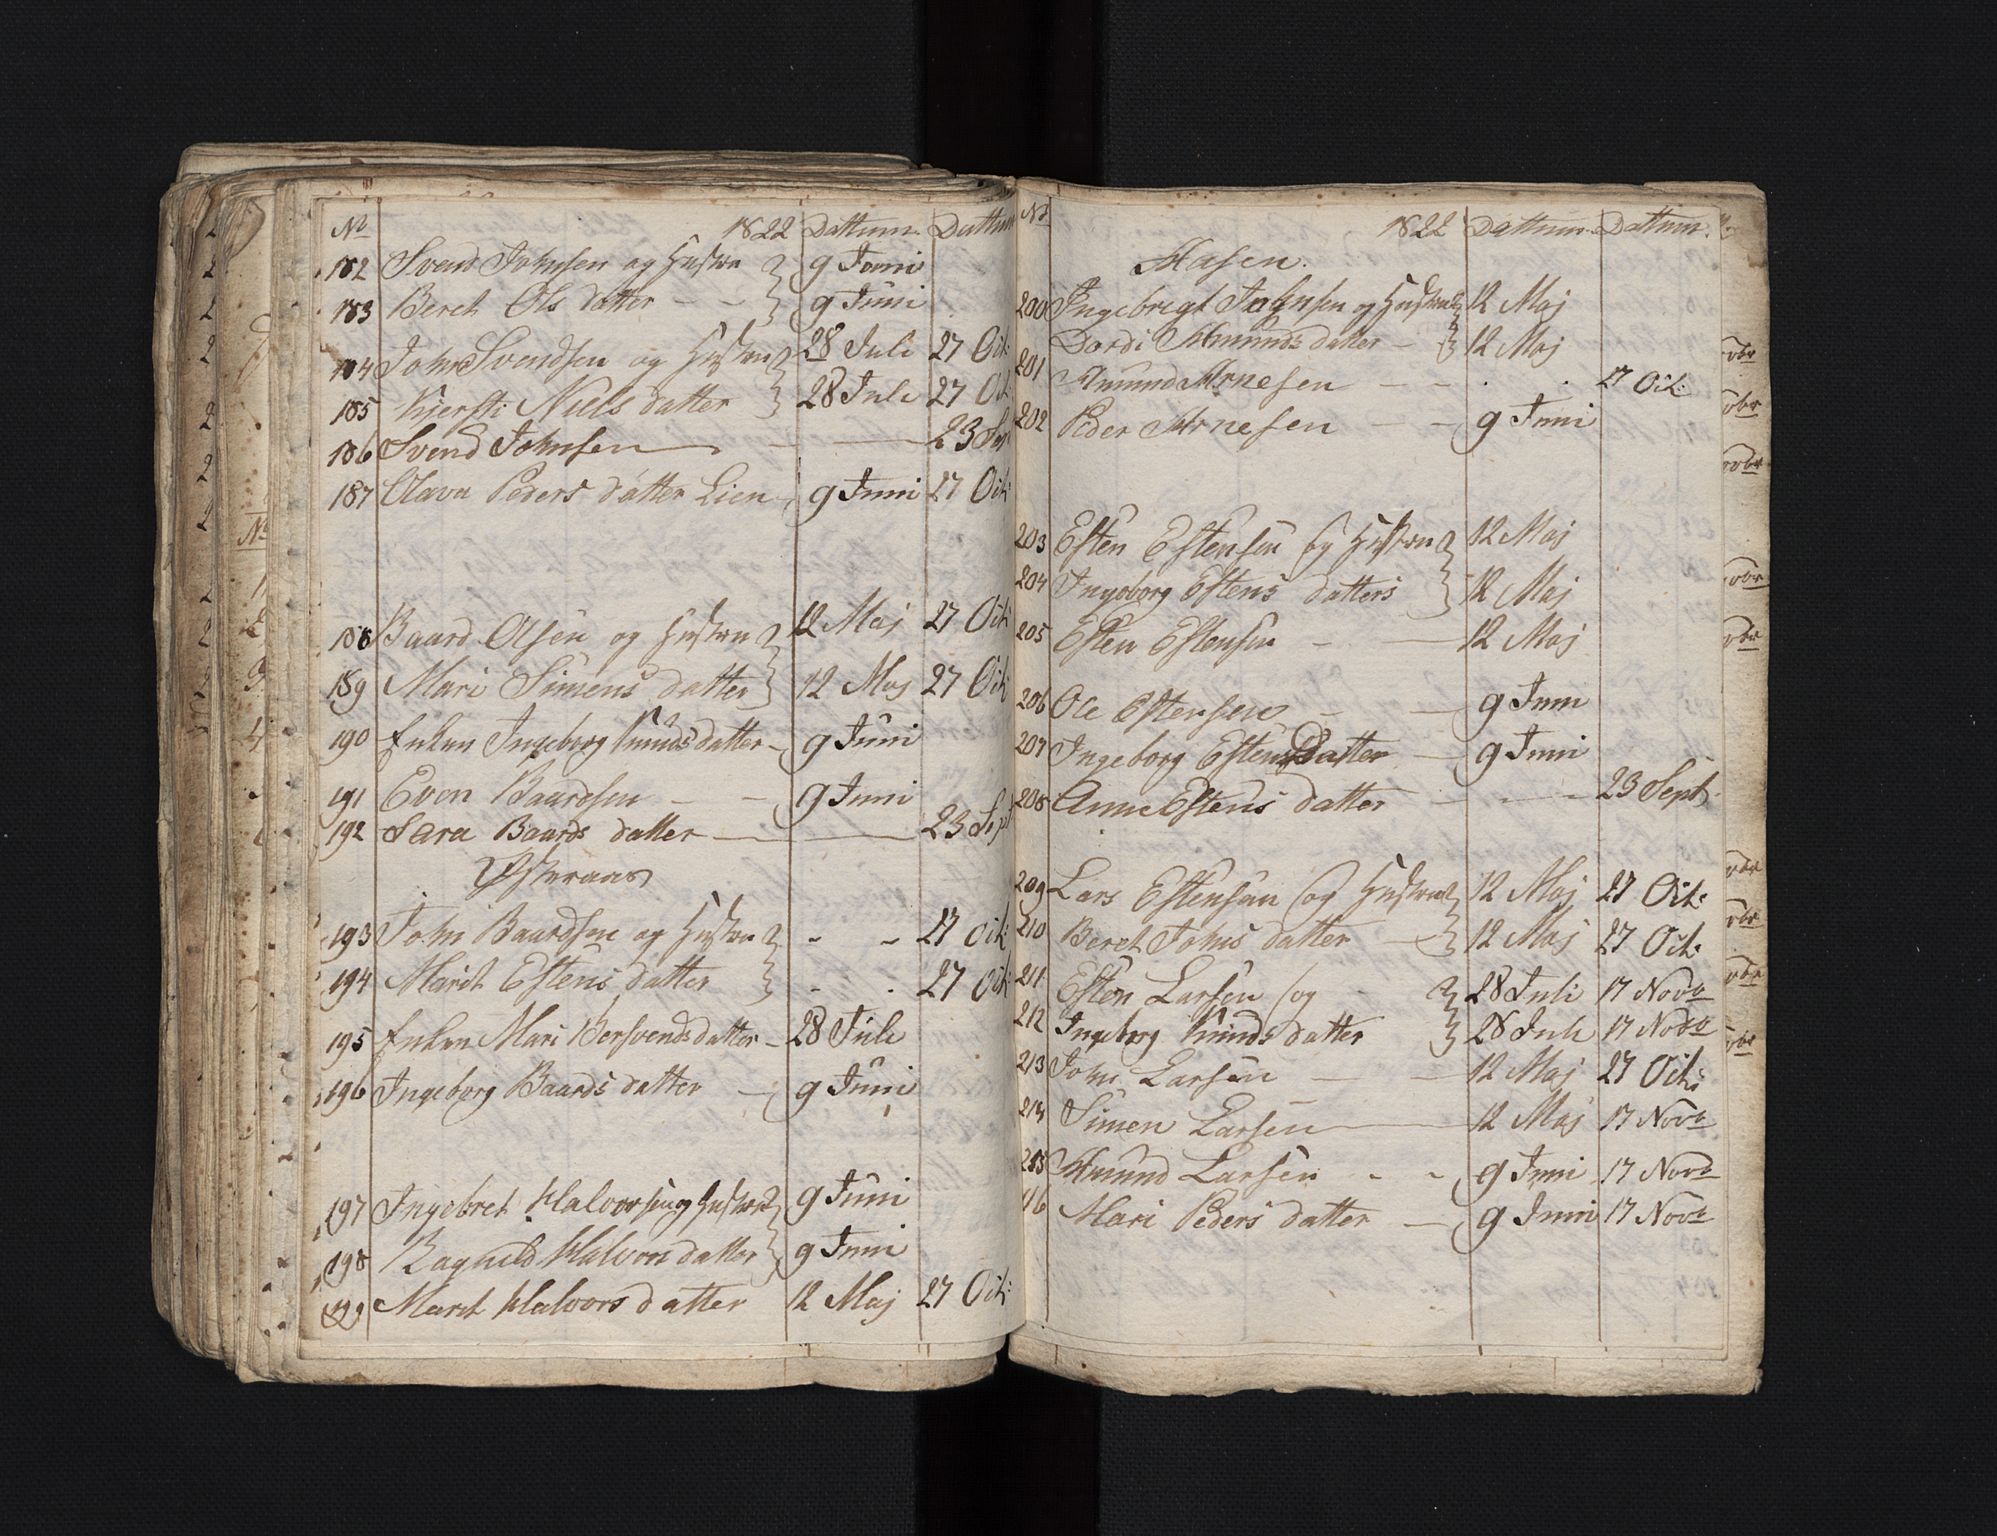 No 1822 Dattum Dattum
182 Svend Johnsen og Hustru 9 Juni
183 Beret Ols datter - - 9 Juni
184 John Svendsen og Hustru 28 Juli 27 Oct:
185 Kjersti Niels datter 28 Juli 27 Oct
186 Svend Johnsen - 23 Sep
187 Olava Peders datter Lien 9 Juni 27 Oct:
188 Baard Olsen og Hustru 12 Maj 27 Oct:
189 Mari Simens datter 12 Maj 27 Oct:
190 Enken Ingeborg Knuds datter - 9 Juni
191 Even Baardsen - - 9 Juni
192 Sara Baards datter - 23 Sept
Østeraas
193 John Baardsen og Hustru - - 27 Oct:
194 Marit Estens datter - - 27 Oct:
195 Enken Mari Bersvends datter - 28 Juli
196 Ingeborg Baards datter - 9 Juni
197 Ingebret Halvorsen og Hustru 9 Juni
198 Ragnild Halvors datter 9 Juni
199 Marit Halvors datter 12 Maj 27 Oct:
No 1822 Dattum Dattum
Aasen.
200 Ingebrigt Johnsen og Hustru 12 Maj
201 Dordi Amunds datter - 12 Maj
Amund Arnesen - - . . 27 Oct:
202 Peder Arnesen - - 9 Juni
203 Esten Estensen og Hustru 12 Maj
204 Ingeborg Estens datters 12 Maj
205 Esten Estensen - - 12 Maj
206 Ole Estensen - - 9 Juni
207 Ingeborg Estens Datter - 9 Juni
208 Anne Estens datter - - - 23 Sept
209 Lars Estensen og Hustrue 12 Maj 27 Oct:
210 Beret Johns datter - 12 Maj 27 Oct:
211 Esten Larsen og - 28 Juli 17 Novr
212 Ingeborg Knuds datter 28 Juli 17 Novr
213 John Larsen - - 12 Maj 27 Oct:
214 Simen Larsen - 12 Maj 17 Novr
215 Amund Larsen - - 9 Juni 17 Novr
16 Mari Peders datter - 9 Juni 17 Novr